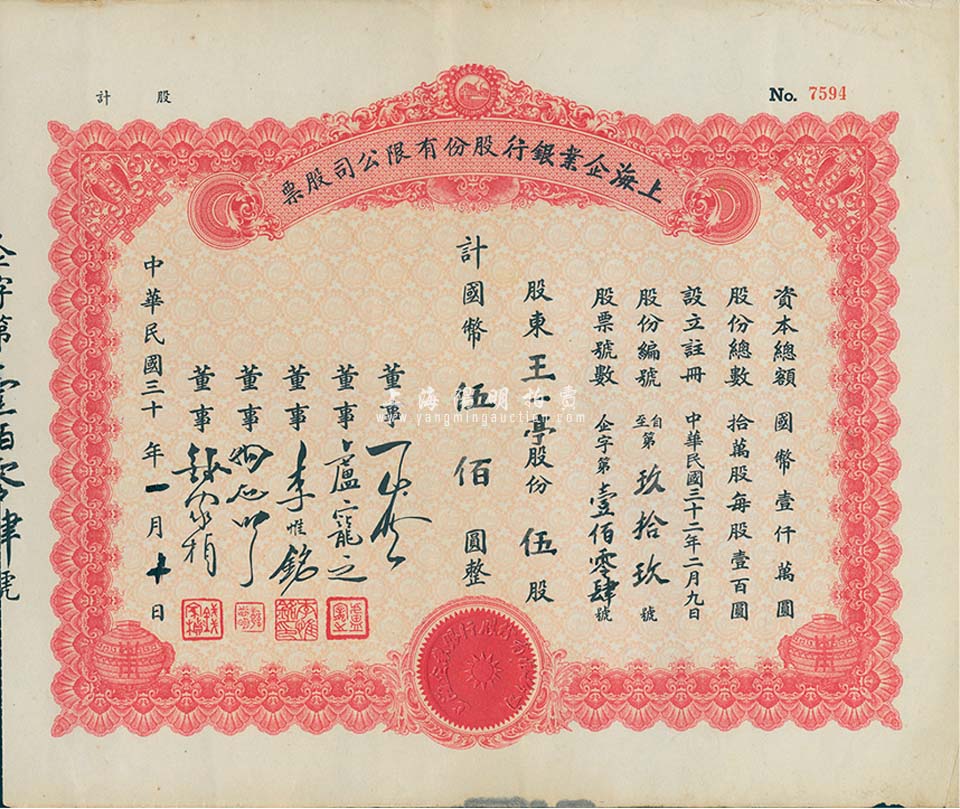 計 股
No. 7594
上海企業銀行股份有限公司股票
資本總額 國幣壹仟萬圓
股份總數 拾萬股每股壹百圓
設立註冊 中華民國三十二年二月九日
股份編號 自至第玖拾玖號
股票號數 企字第壹佰零肆號
股東王一亭股份伍股
計國幣伍佰圓整
董事
董事 盧寵之
董事 李惟銘
董事
董事
中華民國三十年一月十日
企字第壹佰零肆號
上海信明拍賣
www.yangmingauction.com